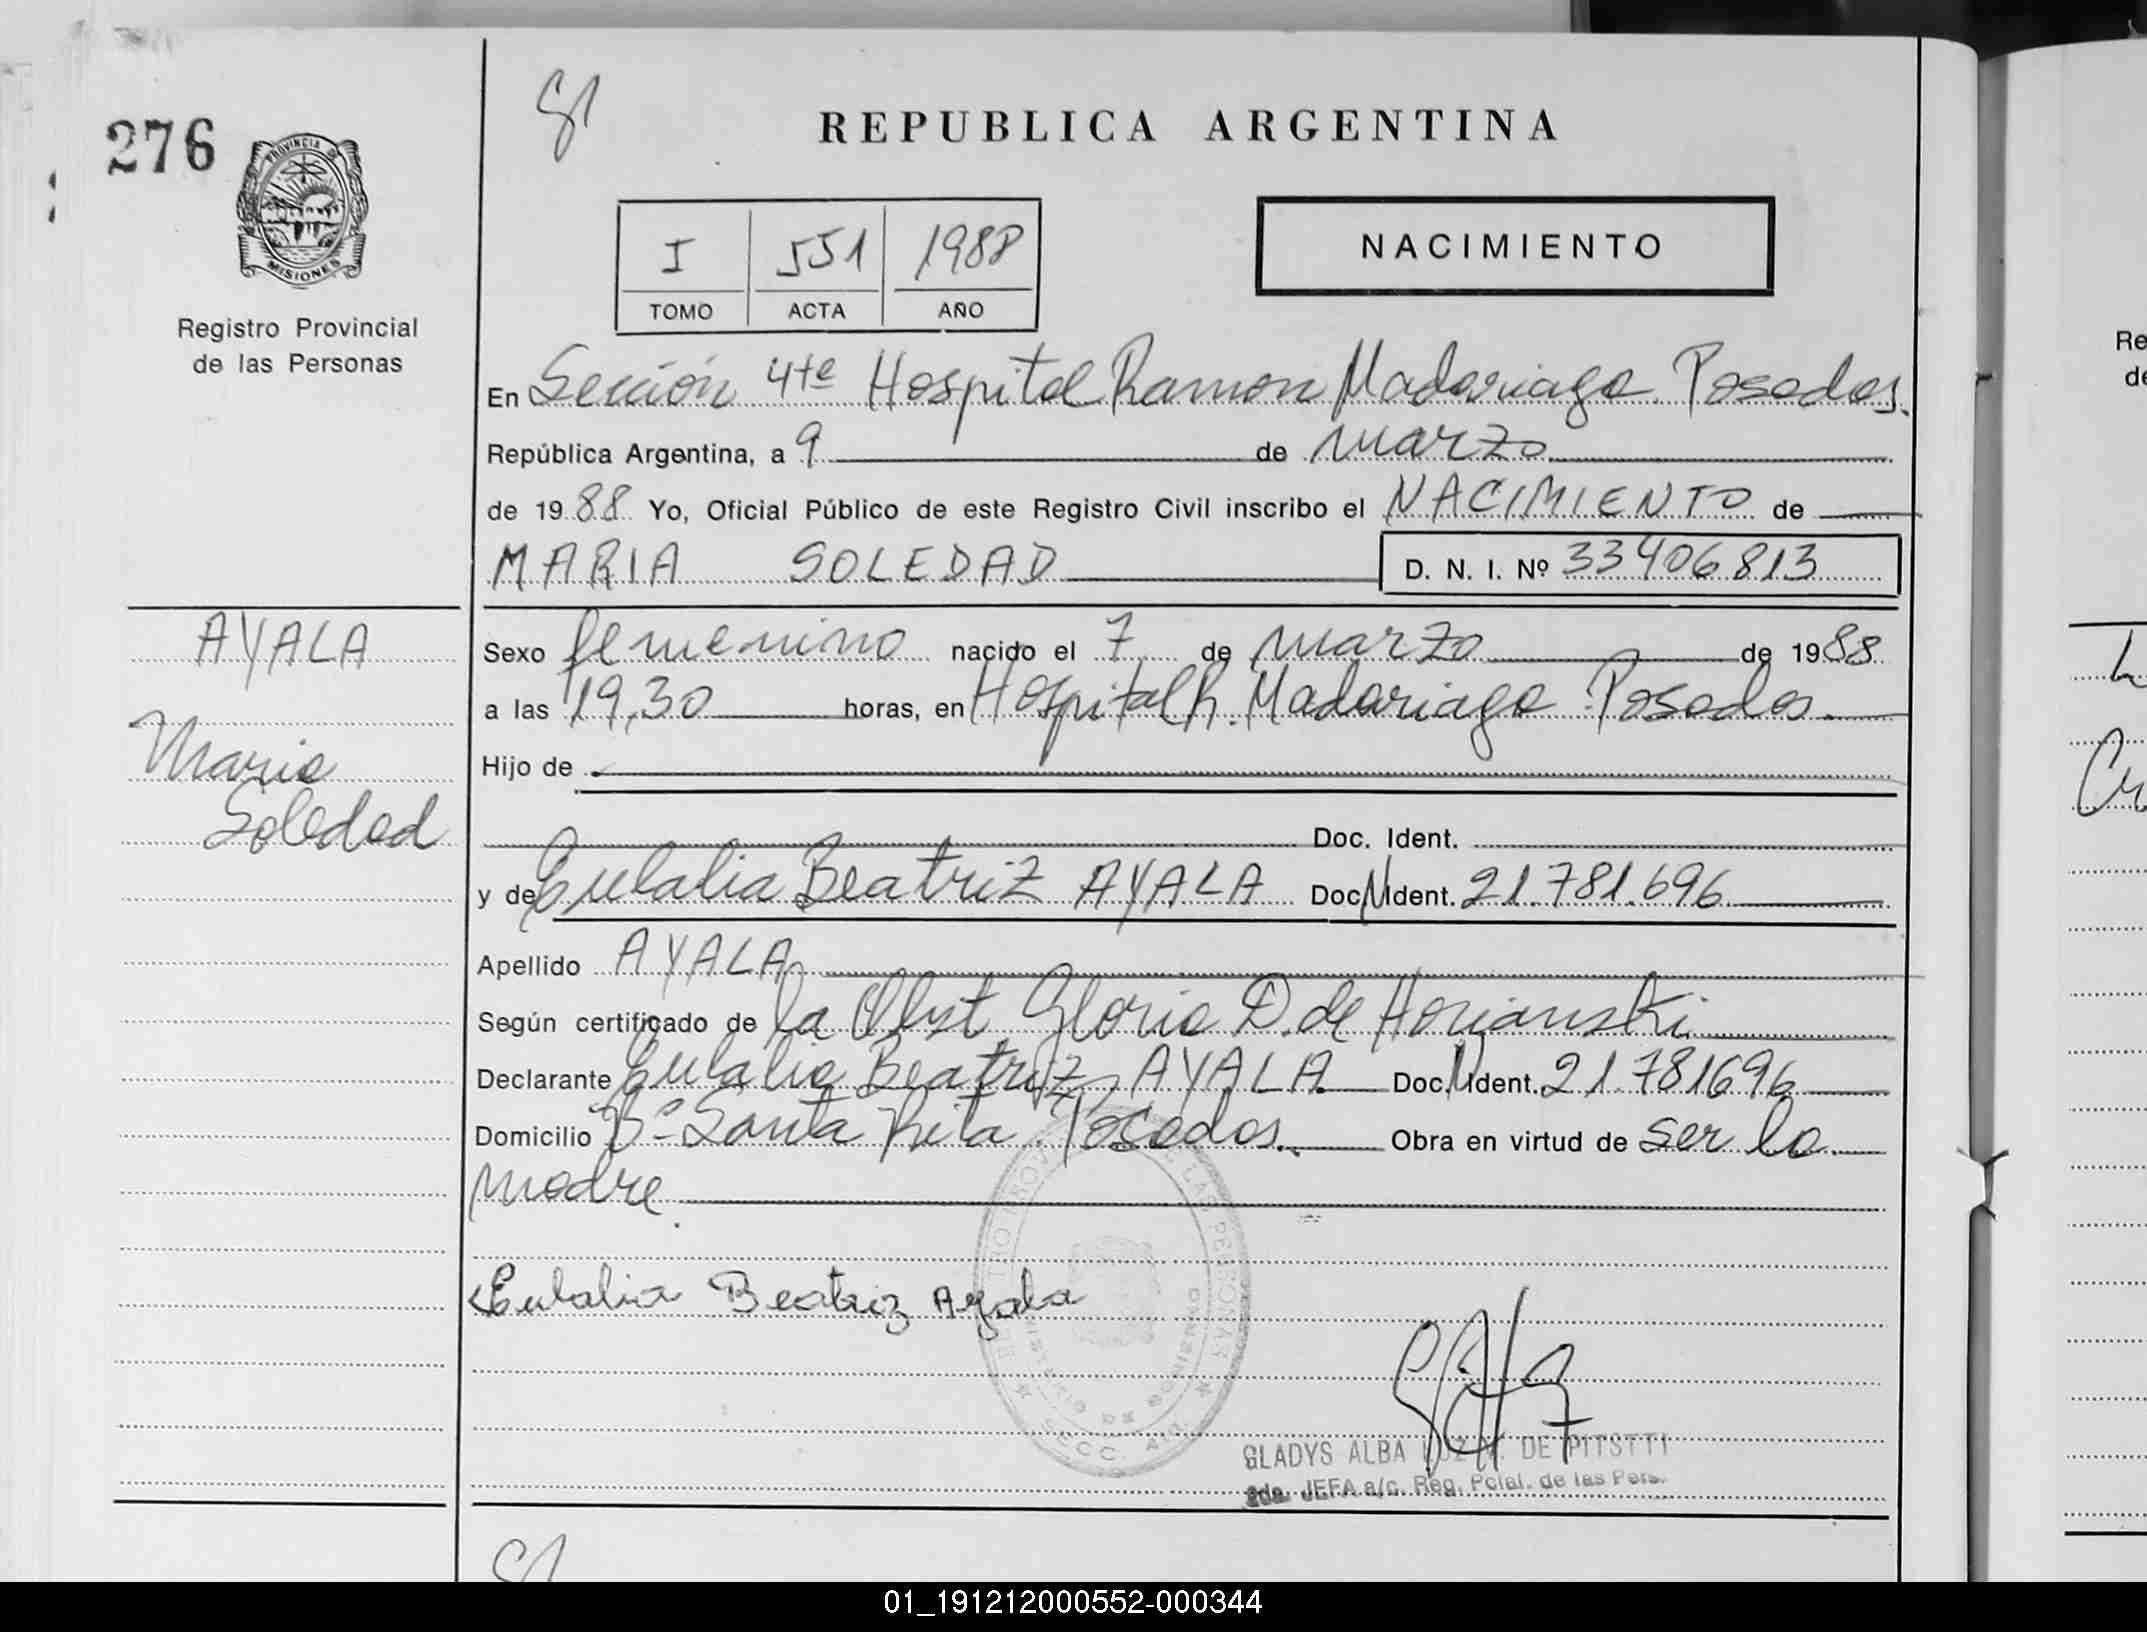 276
PROVINCIA DE
MISIONES
Registro Provincial
de las Personas
REPUBLICA ARGENTINA
I 551 1988
TOMO ACTA AÑO
NACIMIENTO
En Sección 4te Hospital Ramon Madariaga. Posadas.
República Argentina, a 9 de marzo
de 1988 Yo, Oficial Público de este Registro Civil inscribo el NACIMIENTO de
MARIA SOLEDAD D. N. I. Nº 33406813
AYALA
Maria
Soledad
Sexo femenino nacido el 7 de marzo de 1988
a las 19,30 horas, en Hospital R. Madariaga Posadas.
Hijo de
Doc. Ident.
y de Eulalia Beatriz AYALA Doc. Ident. 21.781.696
Apellido AYALA
Según certificado de la Obst Gloria D. de Horianski
Declarante Eulalia Beatriz AYALA Doc. Ident. 21.781696
Domicilio Bº Santa Rita. Posadas. Obra en virtud de ser la
madre.
Eulalia Beatriz Ayala
GLADYS ALBA DE PITSTTI
2da. JEFA a/c. Reg. Pcial. de las Pers.
01_191212000552-000344